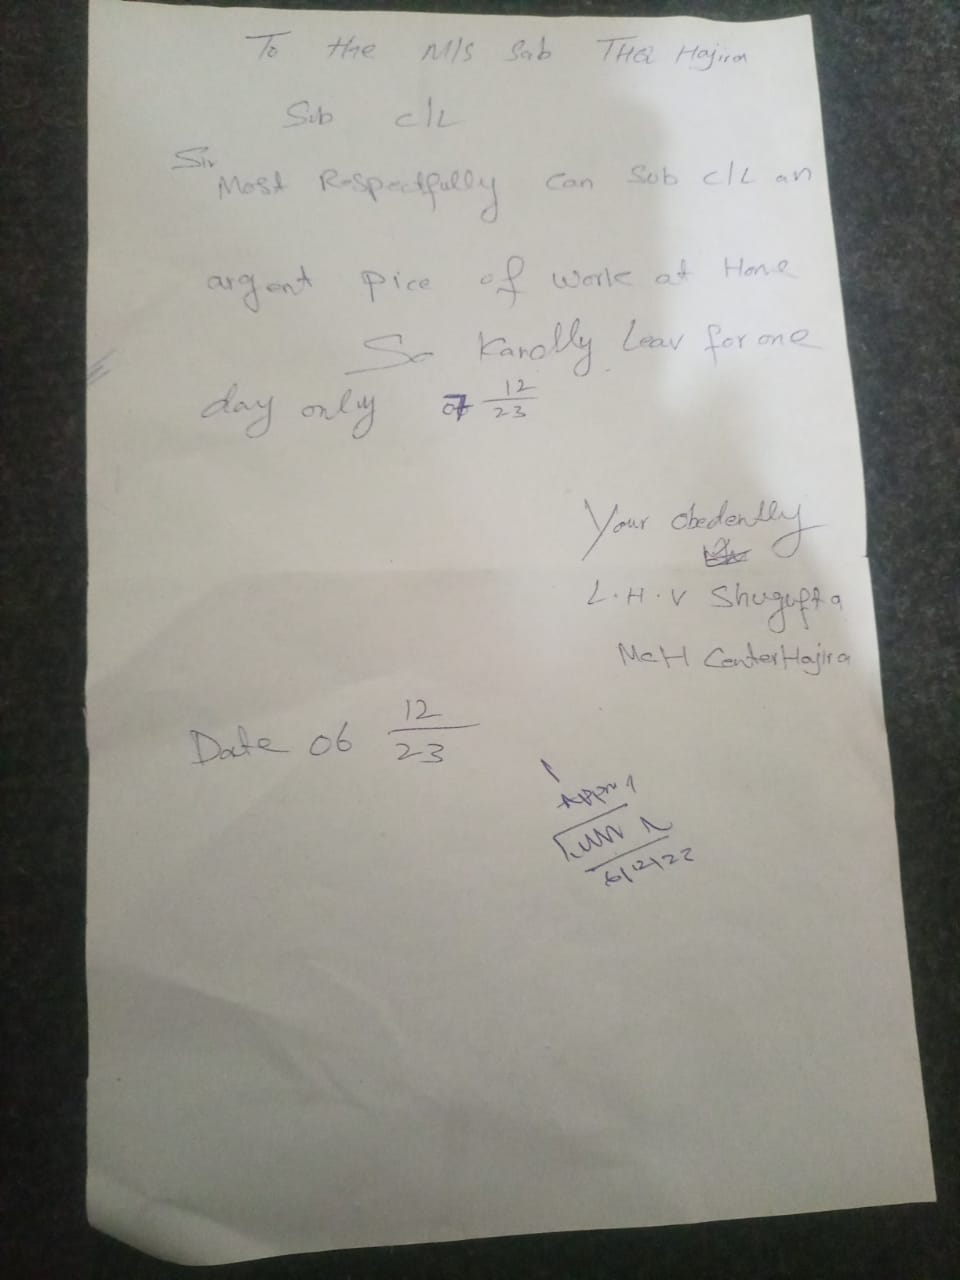 To the M/S Sab THQ Hajira
Sub c/L
Sir
Most Respectfully can Sub c/L an
argent pice of work at Home
So Kandly Leav for one
day only 07 12/23
Your obedently
L.H.V Shugufta
McH Center Hajira
Date 06 12/23